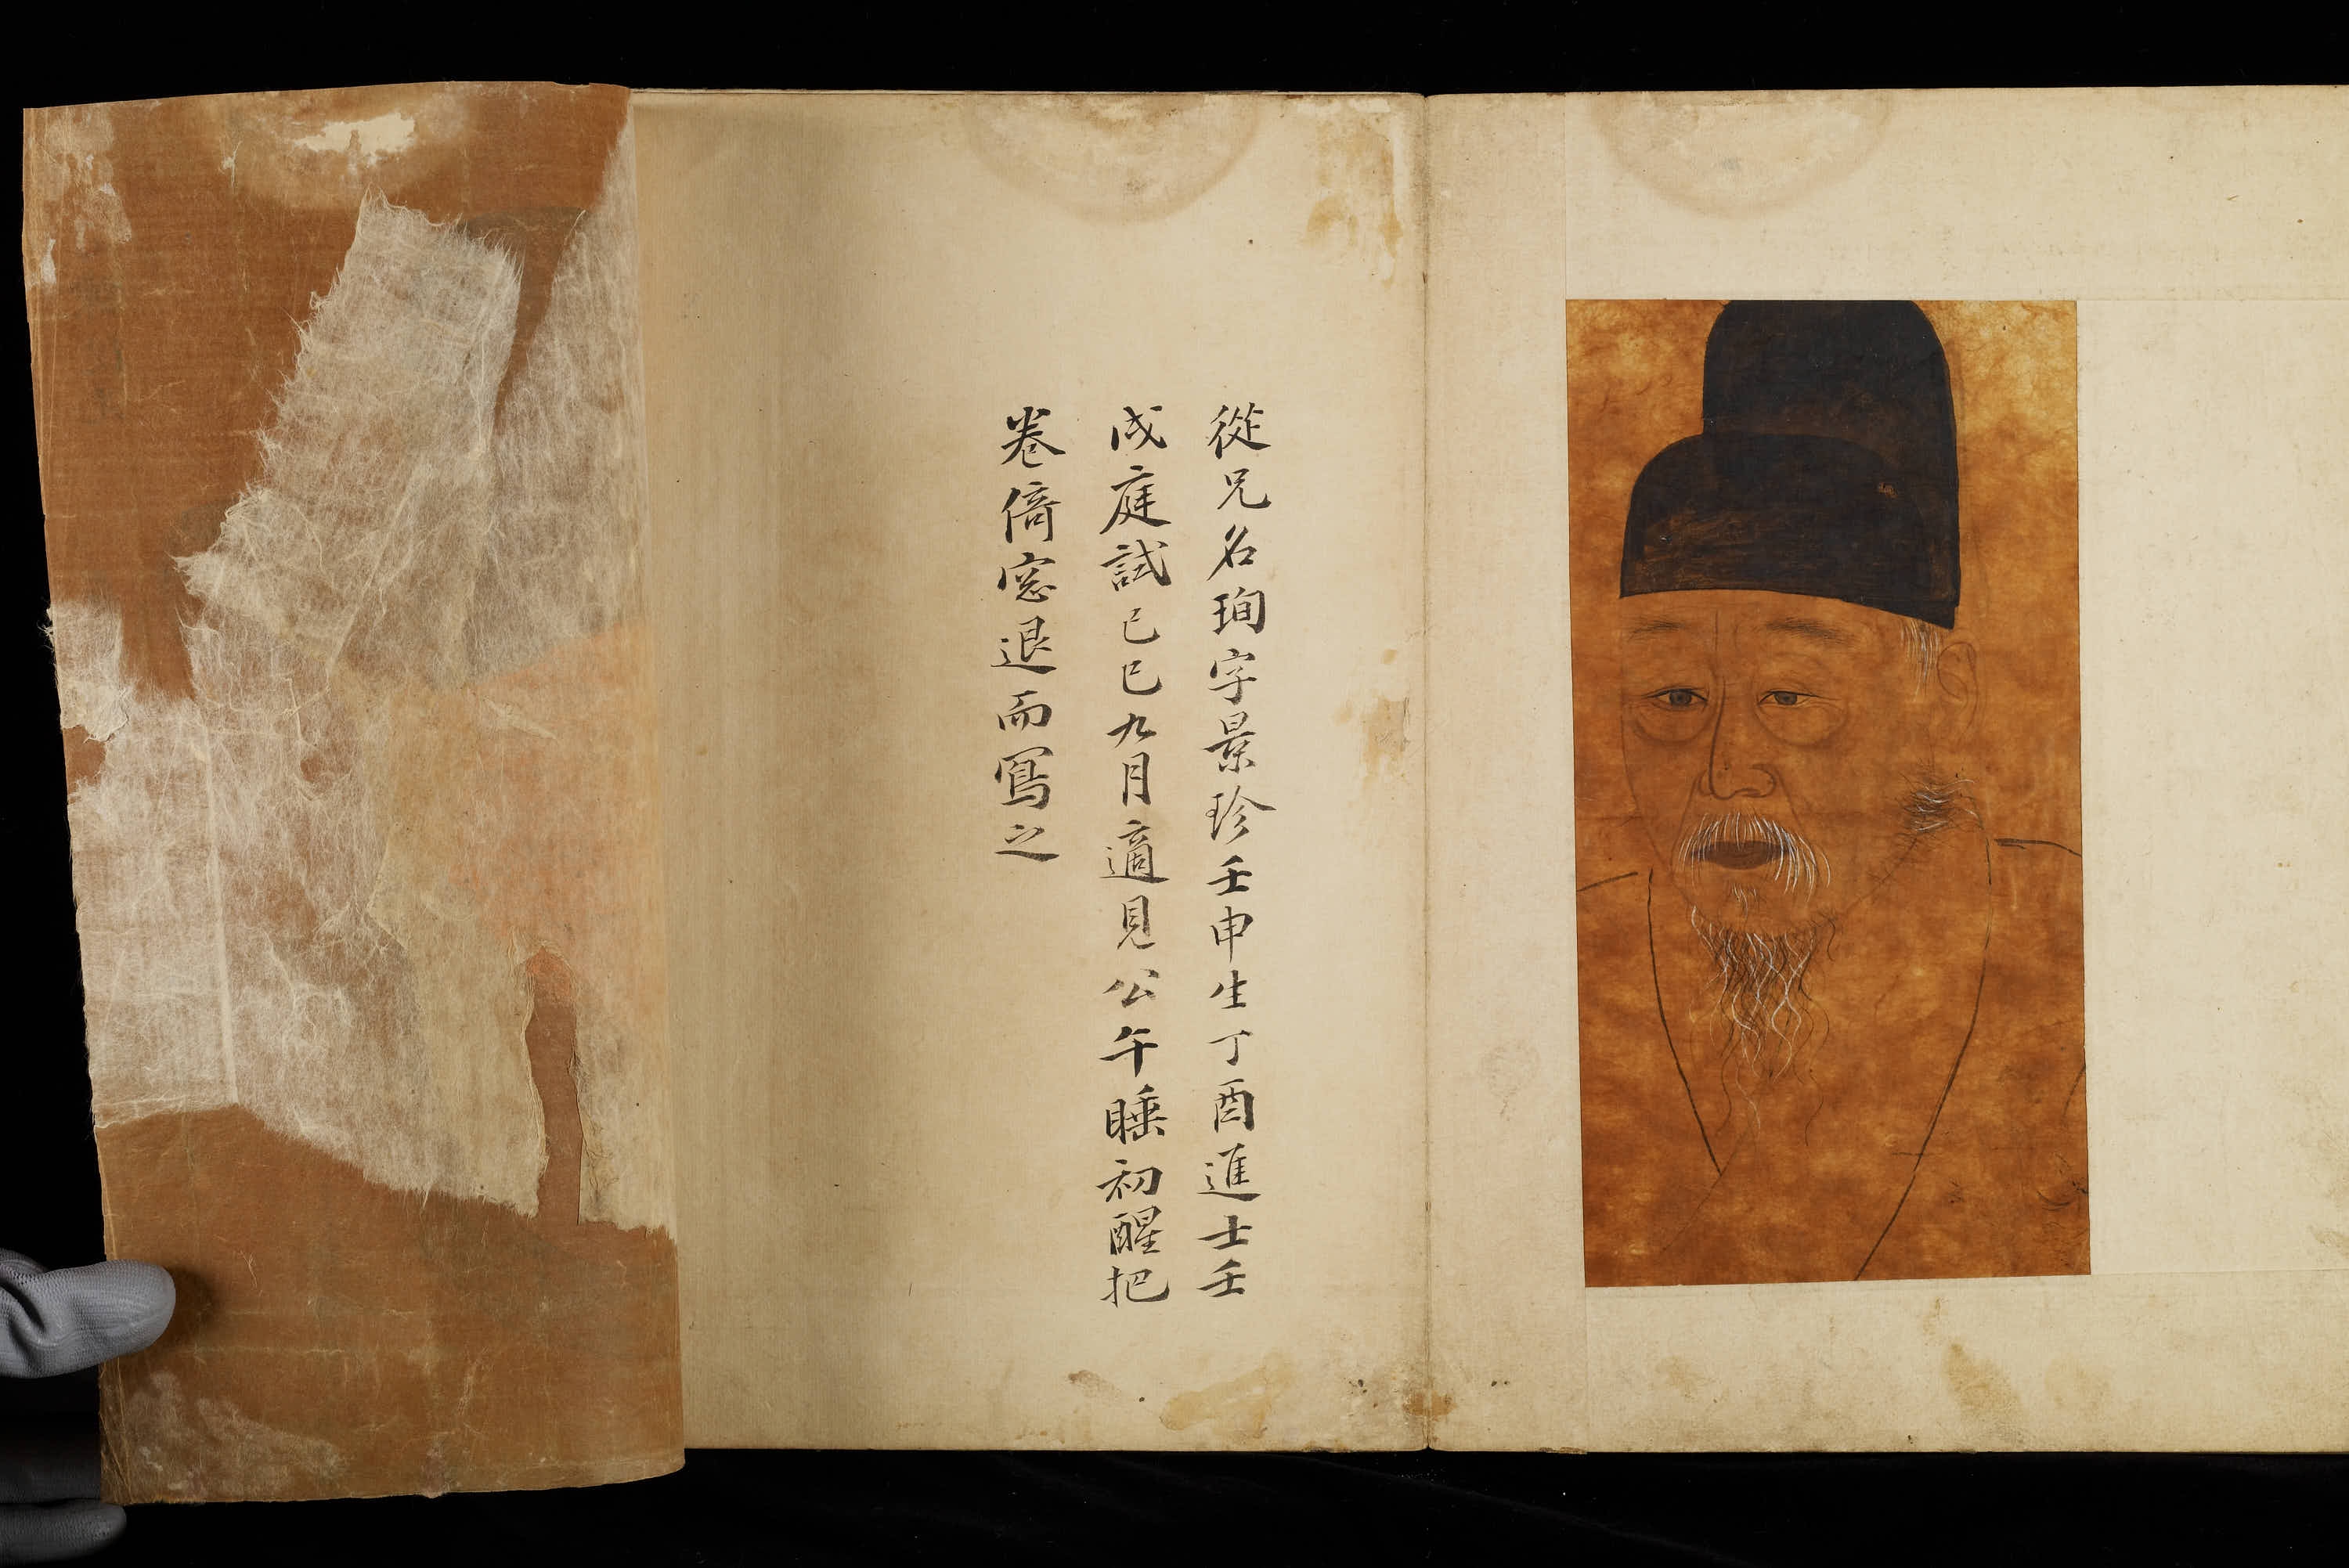 從兄名珣字景珍壬申生丁酉進士壬
戌庭試己巳九月適見公午睡初醒把
卷倚窓退而寫之